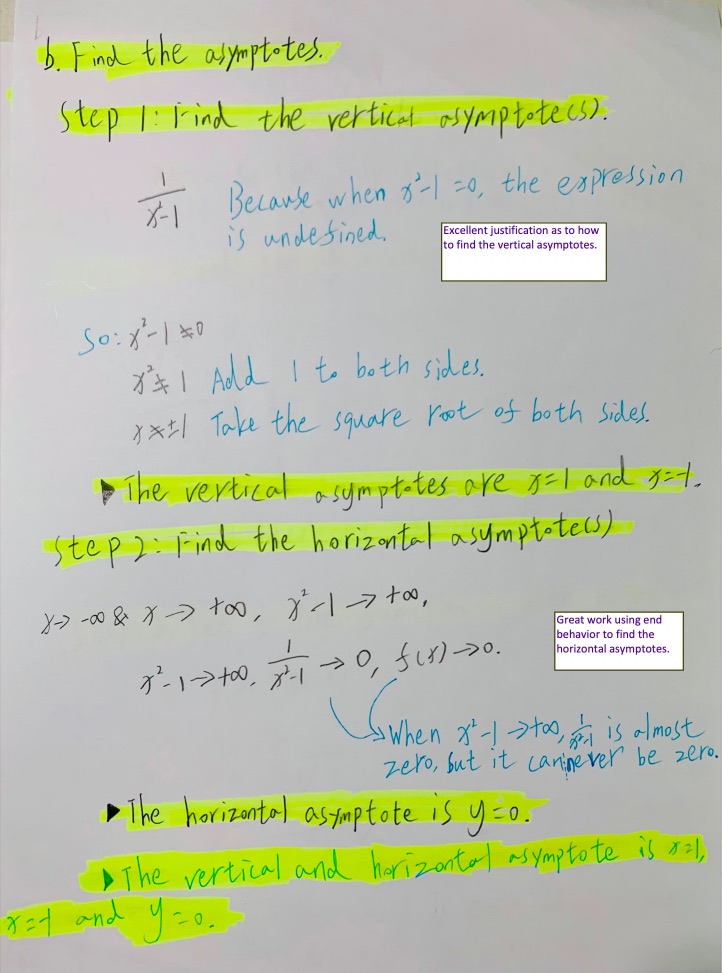 b. Find the asymptotes.
Step 1: Find the vertical asymptote(s).
1/(x²-1) Because when x²-1=0, the expression
is undefined.
Excellent justification as to how
to find the vertical asymptotes.
So: x²-1≠0
x²≠1 Add 1 to both sides.
x≠±1 Take the square root of both sides.
▶ The vertical asymptotes are x=1 and x=-1.
Step 2: Find the horizontal asymptote(s)
x→ -∞ & x → +∞, x²-1 → +∞,
Great work using end
behavior to find the
horizontal asymptotes.
x²-1→+∞, 1/(x²-1) → 0, f(x)→0.
When x²-1→+∞, 1/(x²-1) is almost
zero, but it can never be zero.
▶ The horizontal asymptote is y=0.
▶ The vertical and horizontal asymptote is x=1,
x=-1 and y=0.